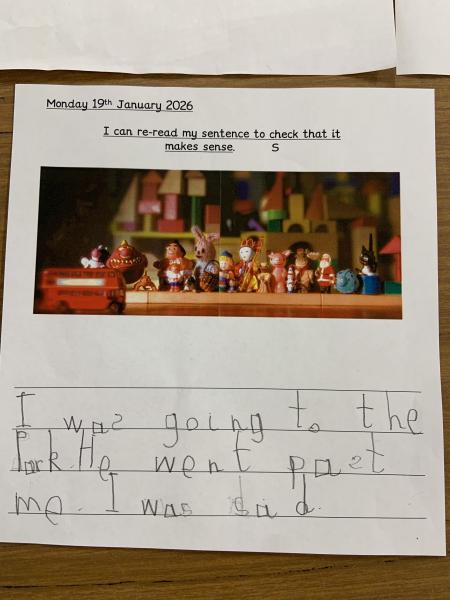 Monday 19th January 2026
I can re-read my sentence to check that it
makes sense. S
I was going to the
Park. He went past
me. I was